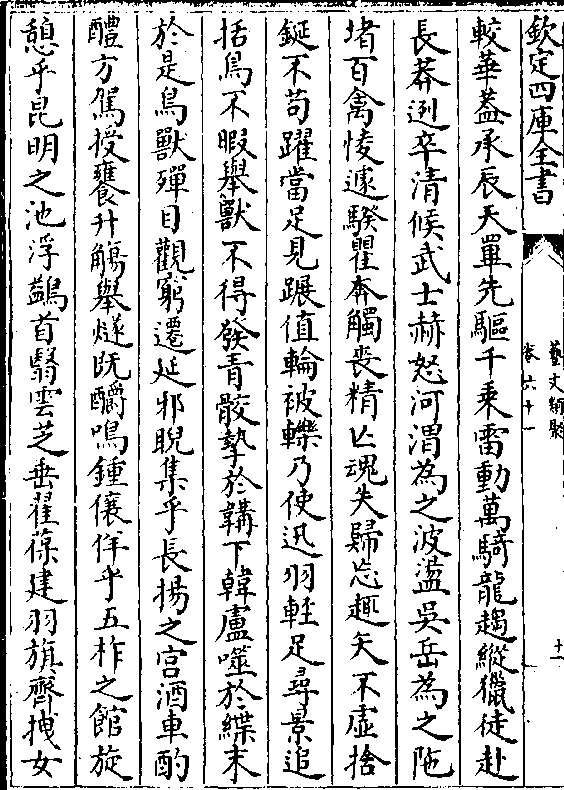 欽定四庫全書
藝文類聚
卷六十一
十一
較華蓋承辰天罼先驅千乘雷動萬騎龍趨縱獵徒赴
長莽迾卒清候武士赫怒河渭為之波盪吳岳為之陁
堵百禽㥄遽騤瞿奔觸喪精亡魂失歸忘趣矢不虛捨
鋋不苟躍當足見蹍值輪被轢乃使迅羽輕足尋景追
括鳥不暇舉獸不得發青骹摯於韝下韓盧噬於緤末
於是鳥獸殫目觀窮遷延邪睨集乎長揚之宫酒車酌
醴方駕授饔升觴舉燧既釂鳴鍾儴佯乎五柞之館旋
憩乎昆明之池浮鷁首翳雲芝垂翟葆建羽旗齊拽女